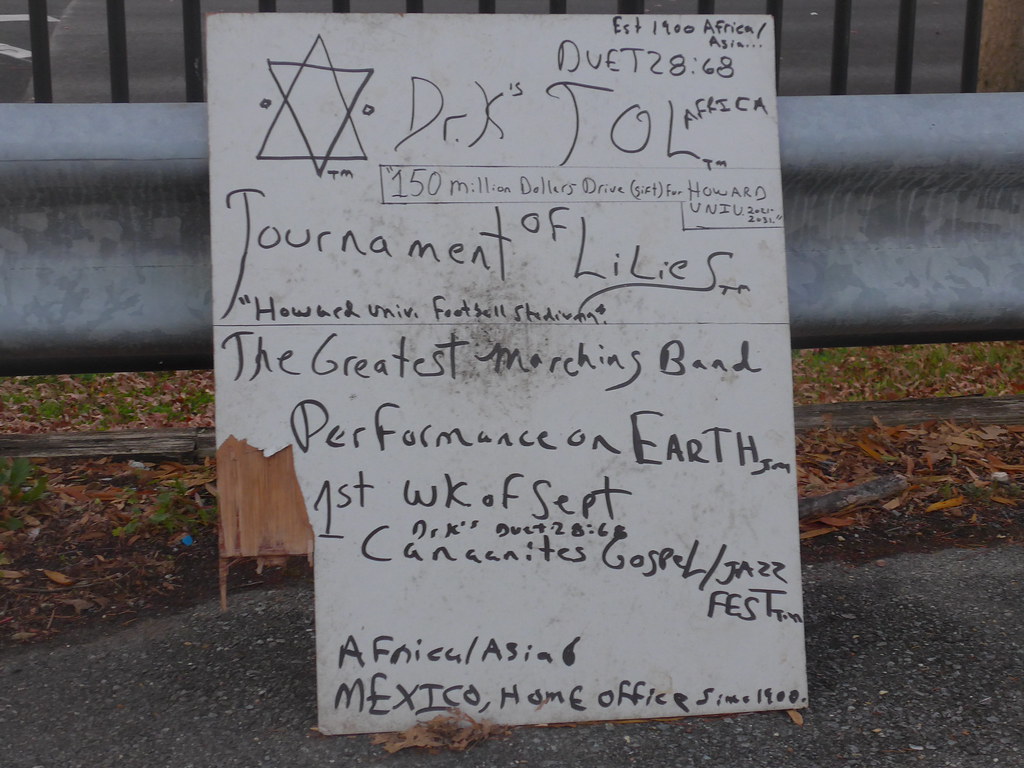 Est 1900 Africa/
Asia...
DUET28:68
Dr.K's TOL AFRICA TM
TM
"150 million Dollars Drive (gift) For HOWARD
UNIV. 2021-
2031."
Tournament OF LiLieS TM
"Howard univ. Football Stadium".
The Greatest Marching Band
Performance on EARTH Tm
1st WK of Sept
Dr.K's Duet28:68
Canaanites Gospel/JAZZ
FEST Tm
AFrica/Asia 6
MEXICO, HOME OFFice Since 1900.